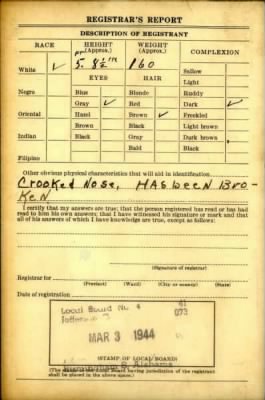 REGISTRAR'S REPORT
DESCRIPTION OF REGISTRANT
RACE HEIGHT (Approx.) WEIGHT (Approx.) COMPLEXION
White ✓ 5. 8½ 160 Sallow
Light
EYES HAIR
Negro Blue Blonde Ruddy
Gray ✓ Red Dark ✓
Oriental Hazel Brown ✓ Freckled
Brown Black Light brown
Indian Black Gray Dark brown
Bald Black
Filipino
Other obvious physical characteristics that will aid in identification
Crooked Nose, HAS been Bro-
KeN
I certify that my answers are true; that the person registered has read or has had
read to him his own answers; that I have witnessed his signature or mark and that
all of his answers of which I have knowledge are true, except as follows:
(Signature of registrar)
Registrar for
(Precinct) (Ward) (City or county) (State)
Date of registration
Local Board No. 4 61
Jefferson 073
MAR 3 1944
Alabama
(STAMP OF LOCAL BOARD)
(The stamp of the Local Board having jurisdiction of the registrant
shall be placed in the above space.)